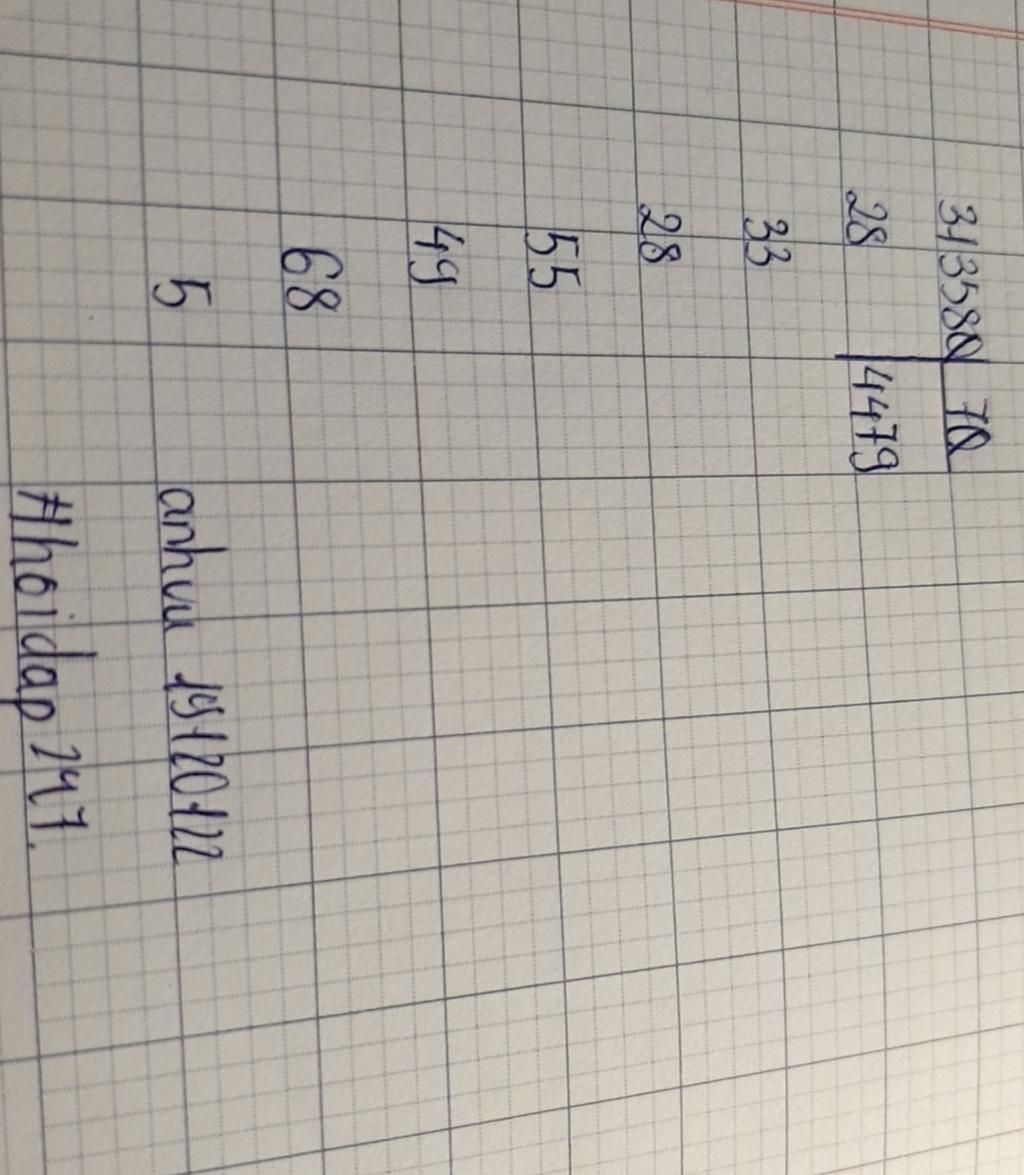 313580 70
28 4479
33
28
55
49
68
5
anhvu 19+20+22
#hoidap247.